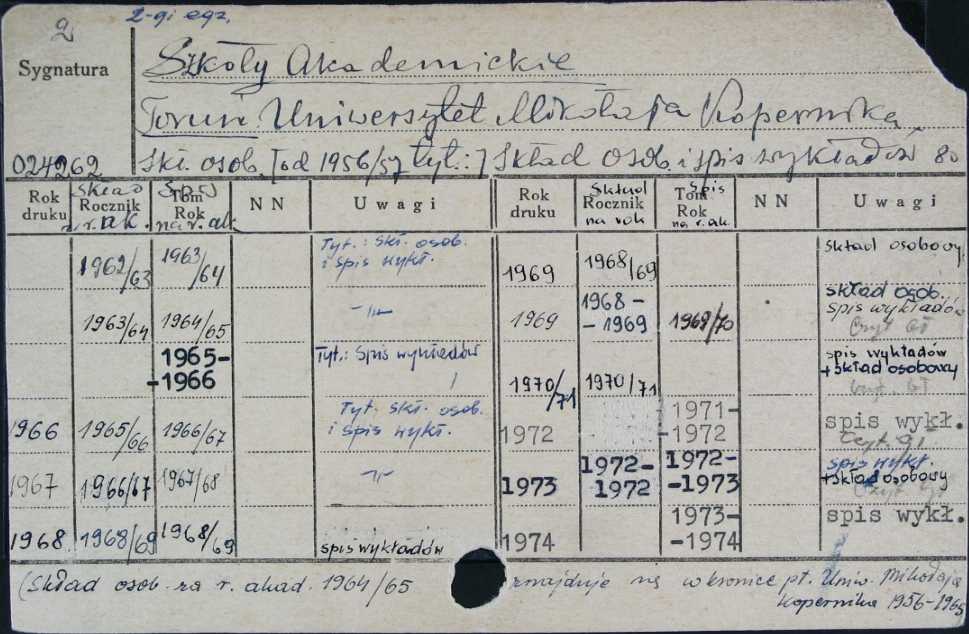 2
2-gi egz.
Sygnatura
Szkoły Akademickie
Toruń. Uniwersytet Mikołaja Kopernika
024262
Skł. osob. [od 1956/57 tyt.:] Skład osob. i spis wykładów 80
Rok druku
Skład Rocznik na r. ak.
Spis Tom Rok na r. ak.
N N
Uwagi
Rok druku
Skład Rocznik na rok
Spis Tom Rok na r. ak.
N N
Uwagi
1962/63 1963/64 Tyt.: Skł. osob. i spis wykł.
1963/64 1964/65 -"-
1965- -1966 Tyt.: Spis wykładów
1966 1965/66 1966/67 Tyt. Skł. osob. i spis wykł.
1967 1966/67 1967/68 -"-
1968 1968/69 1968/69 spis wykładów
1969 1968/69 Skład osobowy
1969 1968- -1969 1969/70 Skład osob. spis wykładów
1970/71 1970/71 spis wykładów +Skład osobowy
1972 1971- -1972 spis wykł.
1973 1972- 1972 1972- -1973 spis wykł. +Skład osobowy
1974 1973- -1974 spis wykł.
(Skład osob. za r. akad. 1964/65 znajduje się w kronice pt. Uniw. Mikołaja
Kopernika 1956-1965